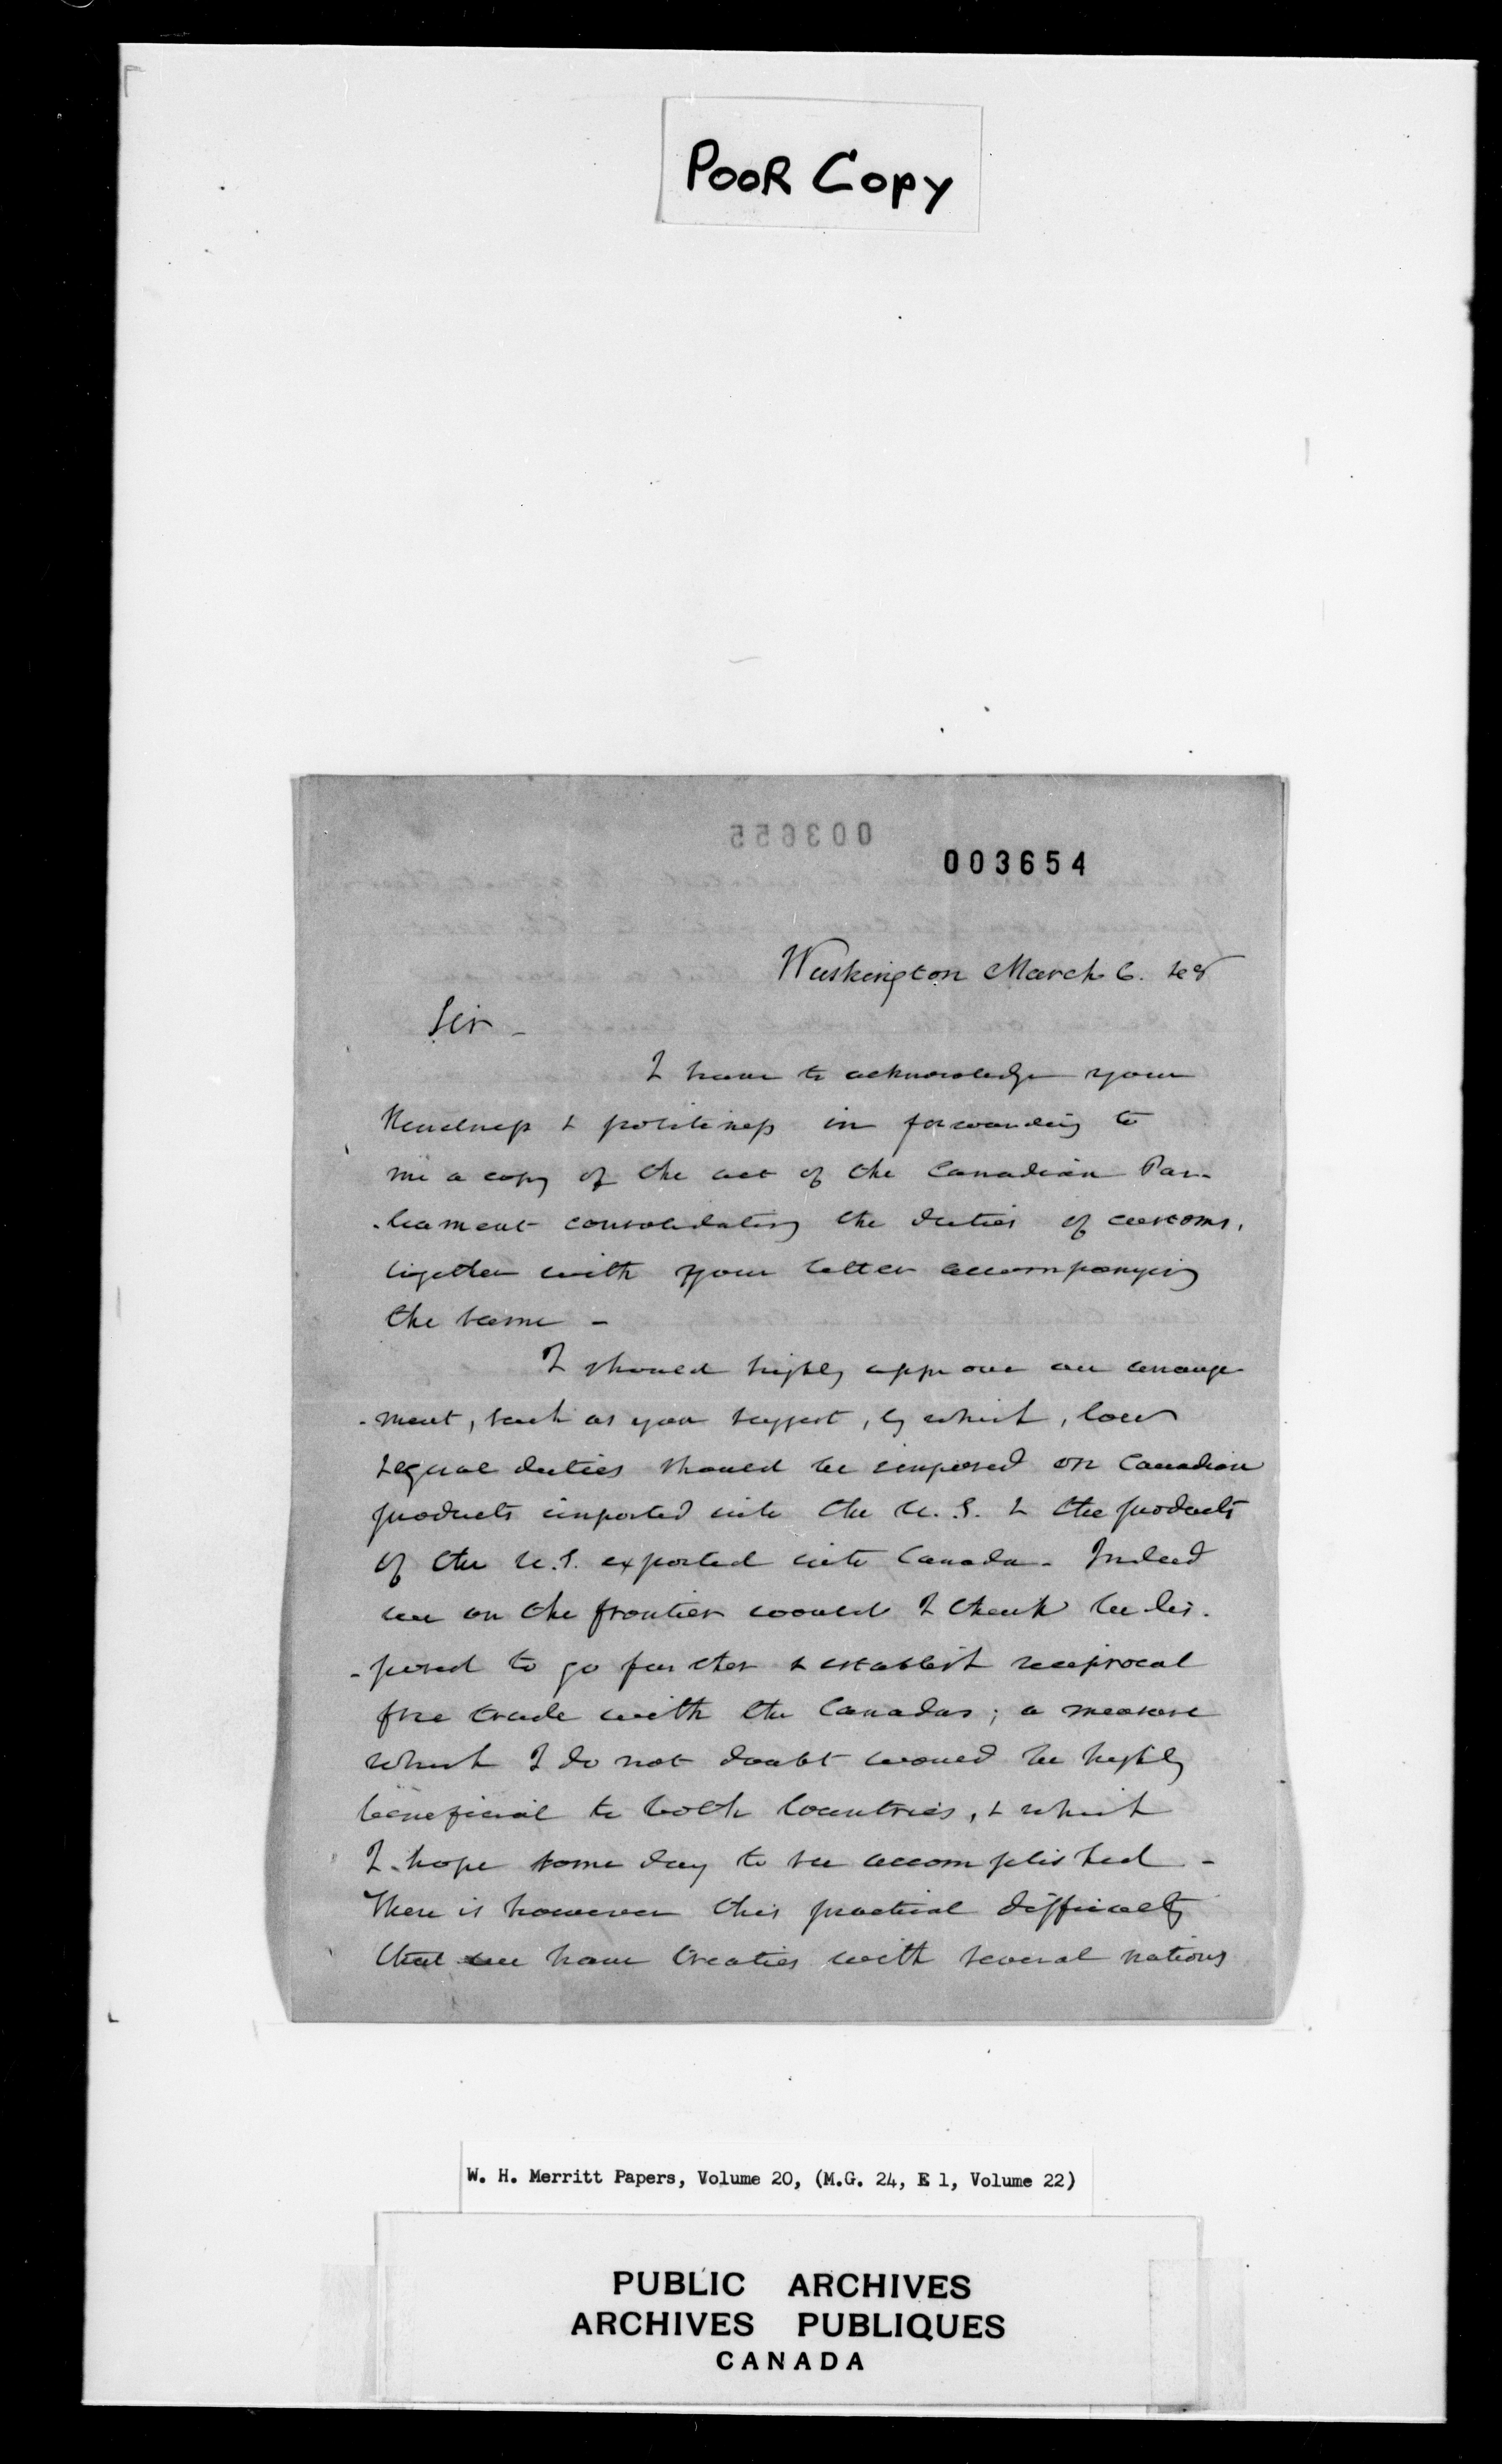 POOR COPY
003655
003654
Washington March 6. 48
Sir -
I have to acknowledge your
kindness & politeness in forwarding to
me a copy of the act of the Canadian Par-
-liament consolidating the duties of customs,
together with your letter accompanying
the same -
I should highly approve an arrange-
-ment, such as you suggest, by which, low
& equal duties should be imposed on Canadian
products imported into the U.S. & the products
of the U.S. exported into Canada. Indeed
we on the frontier would I think be dis-
-posed to go further & establish reciprocal
free trade with the Canadas; a measure
which I do not doubt would be highly
beneficial to both Countries, & which
I hope some day to see accomplished -
There is however this practical difficulty
that we have treaties with several nations
W. H. Merritt Papers, Volume 20, (M.G. 24, E 1, Volume 22)
PUBLIC ARCHIVES
ARCHIVES PUBLIQUES
CANADA